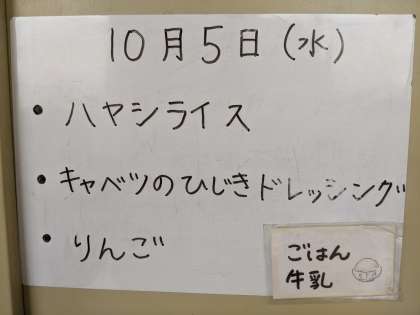 10月5日(水)
• ハヤシライス
• キャベツのひじきドレッシング
• りんご
ごはん
牛乳